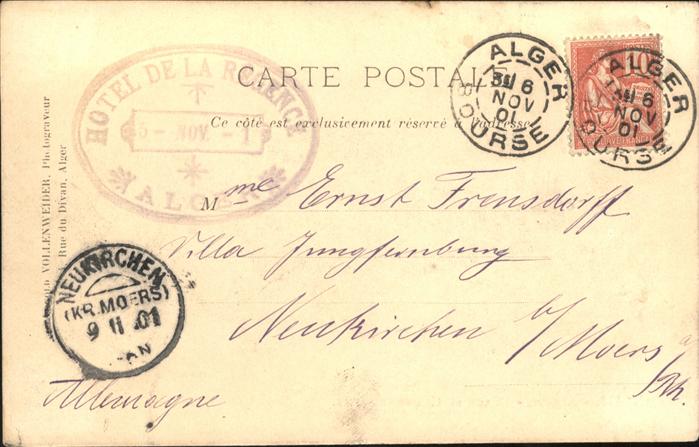 CARTE POSTALE
Ce côté est exclusivement réservé à l'adresse
HOTEL DE LA REGENCE
5 - NOV. - 1
ALGER
ALGER
6
NOV
01
BOURSE
10
ALGER
6
NOV
01
BOURSE
VOLLENWEIDER, Photograveur
Rue du Divan, Alger
Mme Ernst Frensdorff
Villa Jungfernburg
Neukirchen b/Moers
a/Rh.
Allemagne
NEUKIRCHEN
(KR.MOERS)
9 11 01
AN